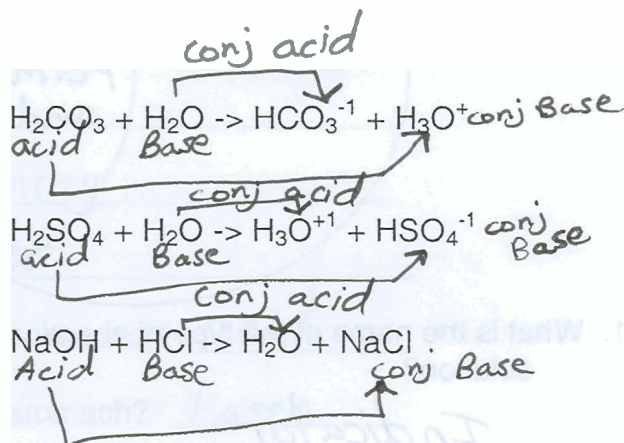 conj acid
H₂CO₃ + H₂O -> HCO₃⁻¹ + H₃O⁺ conj Base
acid Base
conj acid
H₂SO₄ + H₂O -> H₃O⁺¹ + HSO₄⁻¹ conj
acid Base Base
conj acid
NaOH + HCl -> H₂O + NaCl
Acid Base conj Base